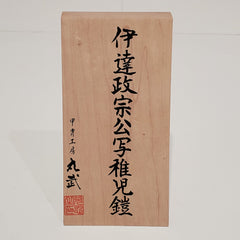 伊達政宗公写稚児鎧
甲冑工房
丸武